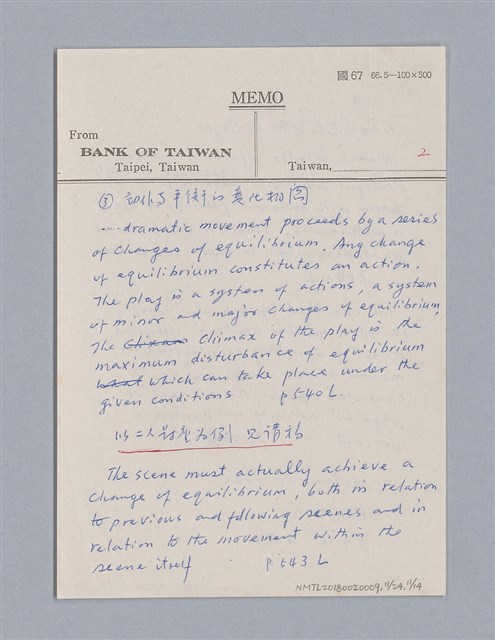 國67 66.5—100×500
MEMO
From
BANK OF TAIWAN
Taipei, Taiwan
Taiwan,
2
③ 動作与平衡的变化相同
....dramatic movement proceeds by a series
of changes of equilibrium. Any change
of equilibrium constitutes an action.
The play is a system of actions, a system
of minor ad major changes of equilibrium,
The climax of the play is the
maximum disturbance of equilibrium
which can take place under the
given conditions p540 L.
以二人対座为例 見
The scene must actually achieve a
change of equilibrium, both in relation
to previous and following scenes and in
relation to the movement within the
scene itself p.543 L
NMTL20180020009, 11/24, 11/14